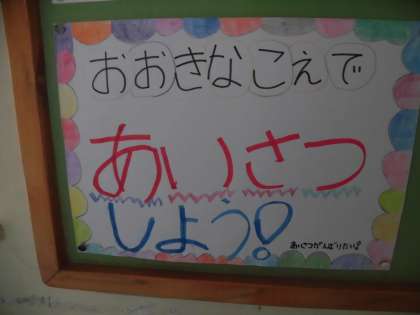 おおきなこえで
あいさつ
しよう!
あいさつがんばりたい!